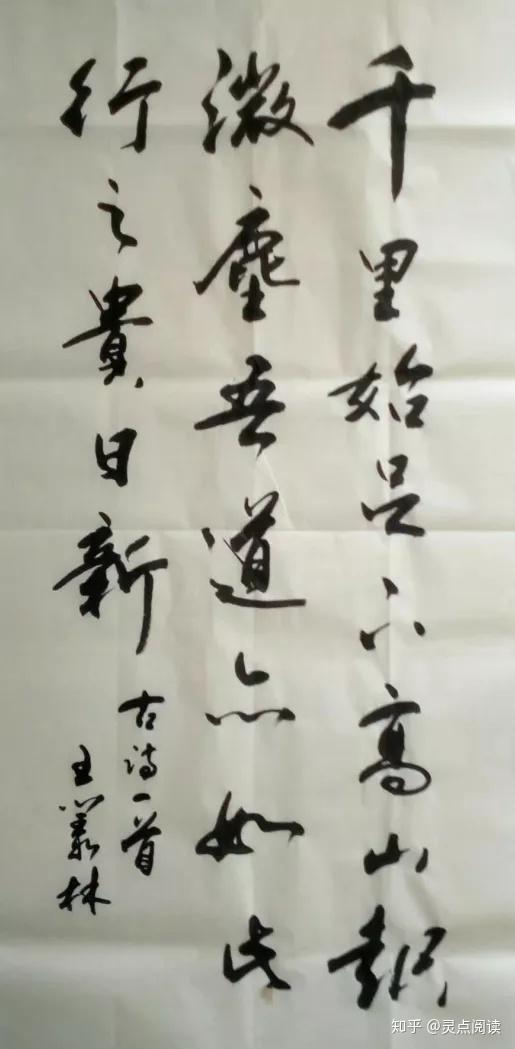 千里始足下高山起
微塵吾道亦如此
行之貴日新
古诗一首
王叢林
知乎 @灵点阅读